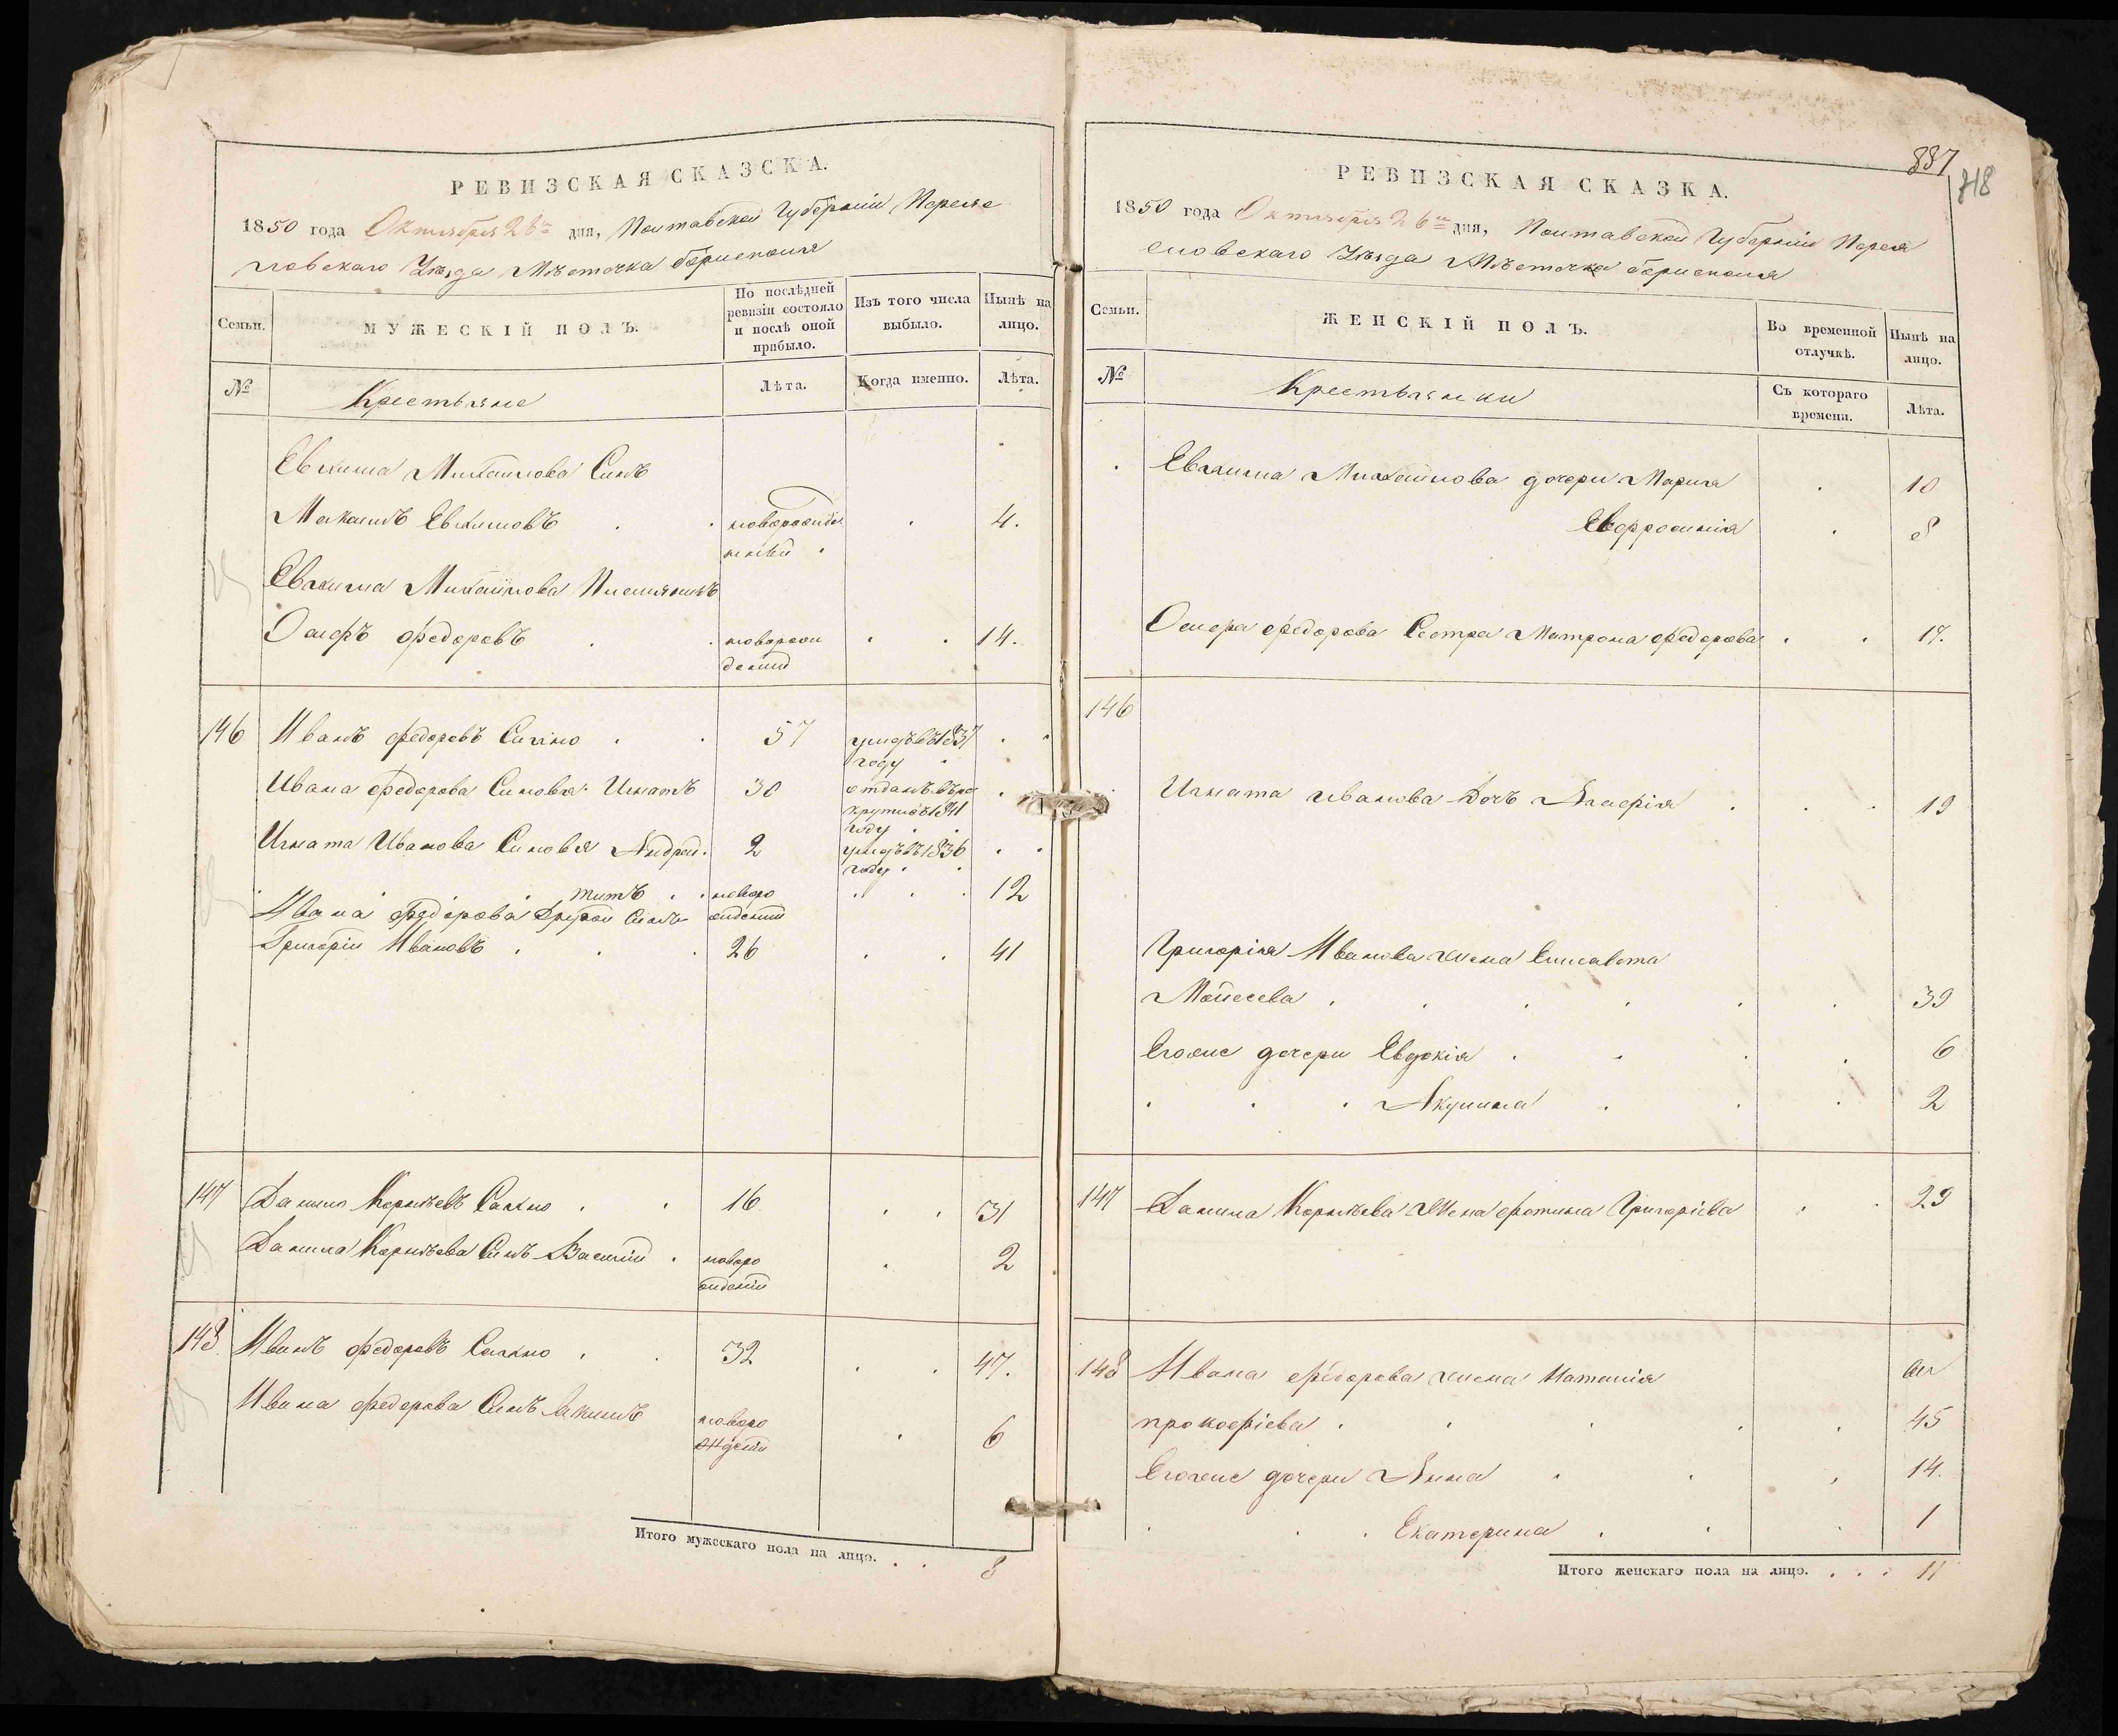 РЕВИЗСКАЯ СКАЗСКА.
1850 года Октября 26го дня, Полтавской Губерніи Переяс
ловскаго Уѣзда Мѣстечка Борисполя
Семьи.
МУЖЕСКІЙ ПОЛЪ.
По послѣдней ревизіи состояло и послѣ оной прибыло.
Изъ того числа выбыло.
Нынѣ на лицо.
№
Крестьяне
Лѣта.
Когда именно.
Лѣта.
Михайлова Синъ
новорожде 4.
нный
Михайлова Племянникъ
Осифъ Федоровъ новорож 14.
дений
146 Иванъ Федоровъ 57 умеръ въ 1837
году
Ивана Федорова Синовья: Игнатъ 30 отданъ въ ре
крути въ 1841
году
Игната Иванова Синовья Андрей 2 умеръ въ 1836
году
Титъ новоро 12
Ивана Федорова Другой Синъ ждений
Григорій Ивановъ 26 41
147 Данило Корнѣевъ 16 31
Данила Корнѣева Синъ Василий новоро 2
ждений
148 Иванъ Федоровъ 32 47.
Ивана Федорова Синъ новоро 6
ждений
Итого мужескаго пола на лицо. . . 8
887
718
РЕВИЗСКАЯ СКАЗКА.
1850 года Октября 26го дня, Полтавской Губерніи Перея
словскаго Уѣзда Мѣстечка Борисполя
Семьи.
ЖЕНСКІЙ ПОЛЪ.
Во временной отлучкѣ.
Нынѣ на лицо.
№
Крестьянки
Съ котораго времени.
Лѣта.
Михайлова дочери Марія 10
Евфросинія 8
Осифа Федорова Сестра Матрона Федорова 17.
146
Игната Иванова Дочь Агафія 19
Григорія Иванова жена Елисавета
Мойсеева 39
Егоже дочери Евдокія 6
Акулина 2
147 Данила Корнѣева Жена Фотина Григоріева 29
148 Ивана Федорова жена Наталія
прокофіева 45
Егоже дочери Анна 14.
Екатерина 1
Итого женскаго пола на лицо. . . . 11